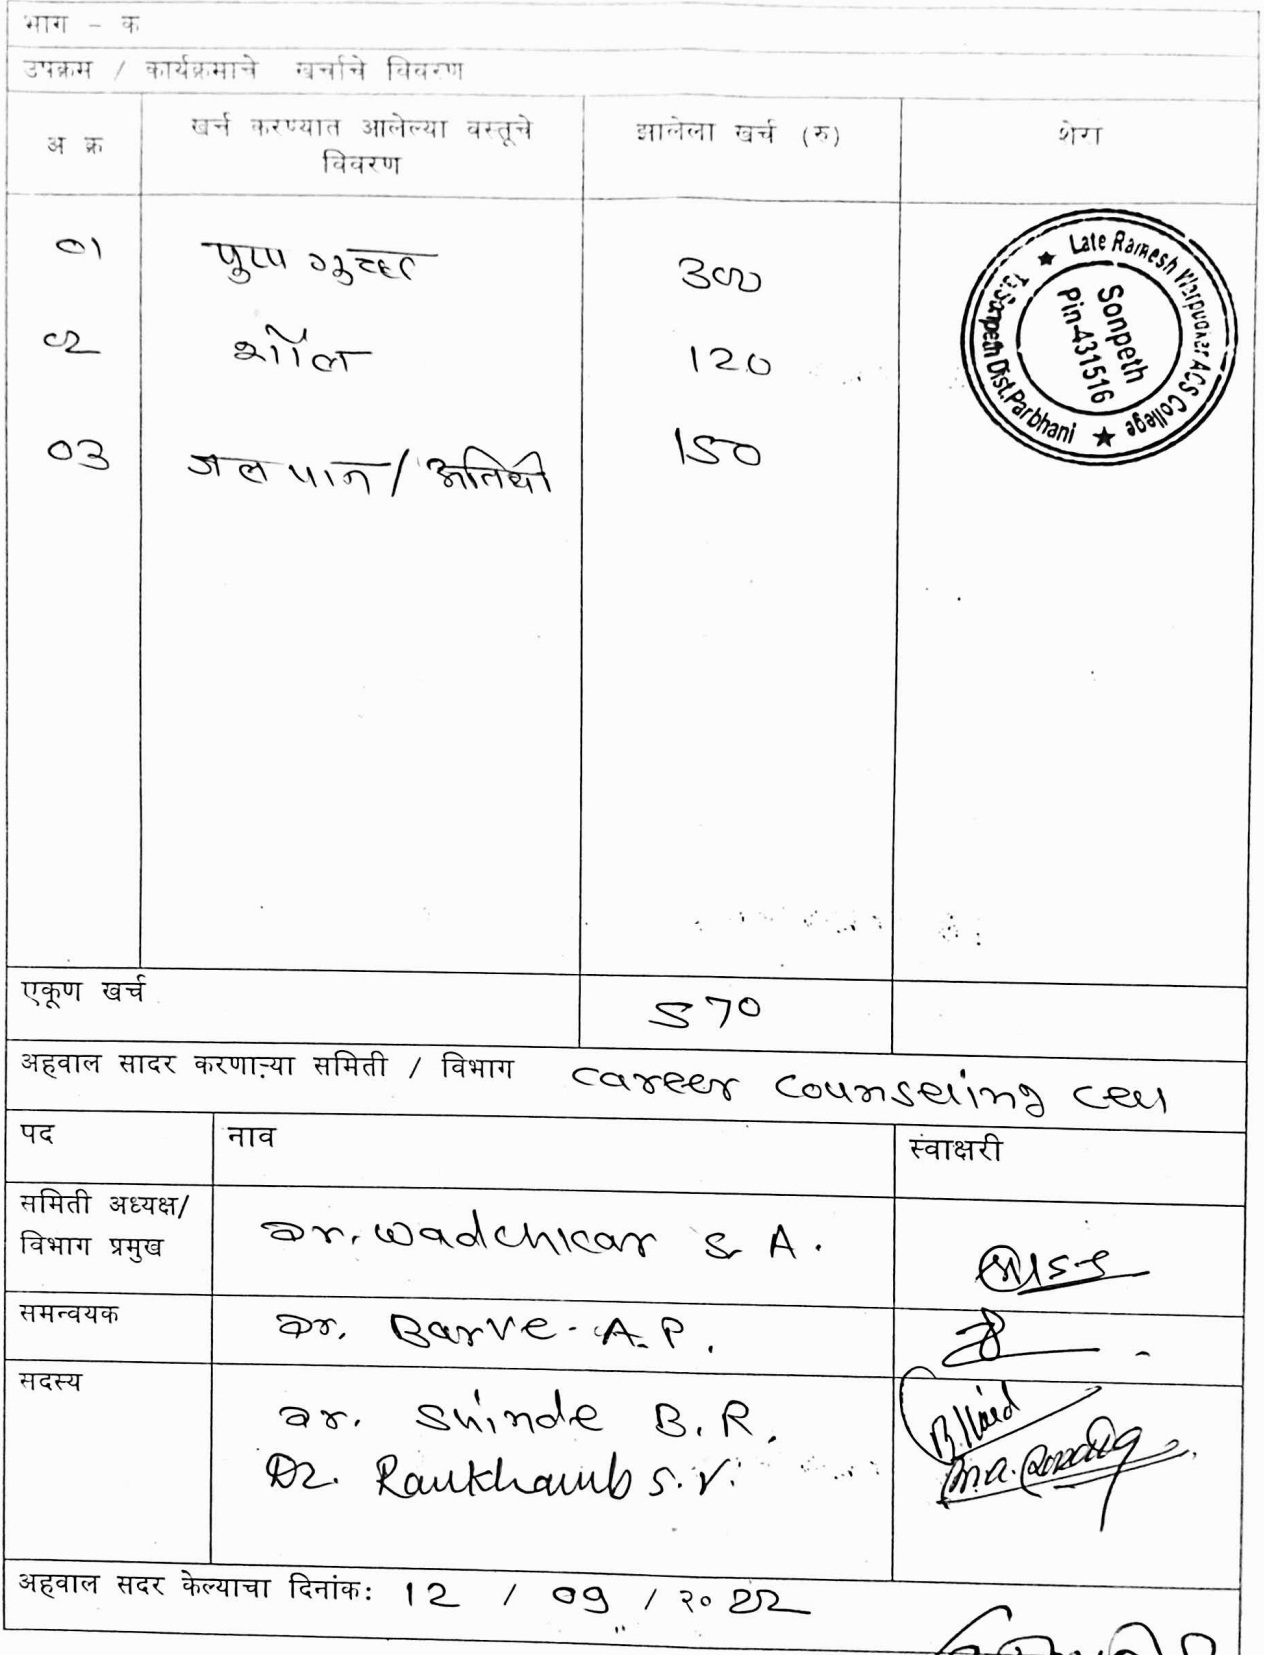 भाग - क
उपक्रम / कार्यक्रमाचे खर्चाचे विवरण
अ क्र
खर्च करण्यात आलेल्या वस्तूचे
विवरण
झालेला खर्च (रु)
शेरा
01 पुष्प गुच्छ 300
02 शॉल 120
03 जल पान / अतिथी 150
Late Ramesh Warpudkar ACS College
Tq.Sonpeth Dist.Parbhani
Sonpeth
Pin-431516
एकूण खर्च 570
अहवाल सादर करणाऱ्या समिती / विभाग career counseling cell
पद नाव स्वाक्षरी
समिती अध्यक्ष/
विभाग प्रमुख
Dr. Wadchkar S. A.
समन्वयक Dr. Barve A.P.
सदस्य Dr. Shinde B.R.
Dr. Rankhamb S.V.
अहवाल सदर केल्याचा दिनांक: 12 / 09 / २०22